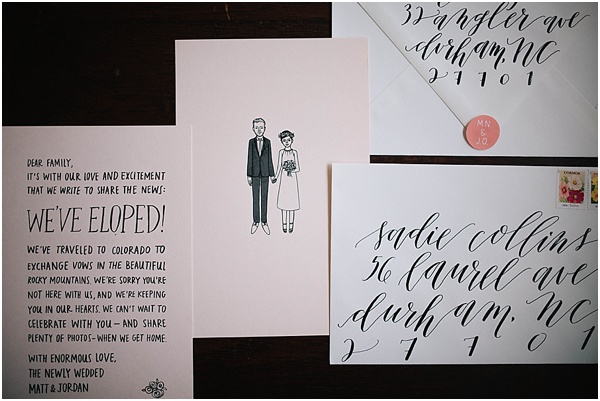 DEAR FAMILY,
IT'S WITH OUR LOVE AND EXCITEMENT
THAT WE WRITE TO SHARE THE NEWS:
WE'VE ELOPED!
WE'VE TRAVELED TO COLORADO TO
EXCHANGE VOWS IN THE BEAUTIFUL
ROCKY MOUNTAINS. WE'RE SORRY YOU'RE
NOT HERE WITH US, AND WE'RE KEEPING
YOU IN OUR HEARTS. WE CAN'T WAIT TO
CELEBRATE WITH YOU – AND SHARE
PLENTY OF PHOTOS – WHEN WE GET HOME.
WITH ENORMOUS LOVE,
THE NEWLY WEDDED
MATT & JORDAN
32 angler ave
durham, NC
27701
MN
&
J.O.
sadie collins
56 laurel ave
durham, NC
27701